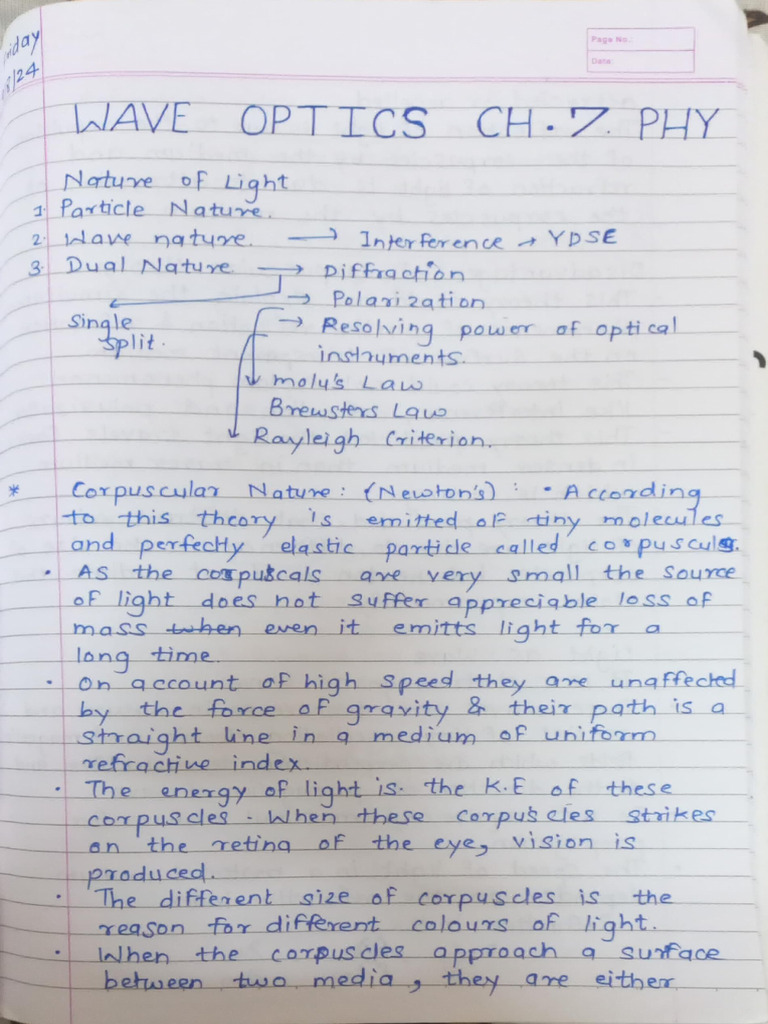 Page No.
Date:
/8/24
WAVE OPTICS CH.7. PHY
Nature of Light
1. Particle Nature.
2. Wave nature. → Interference → YDSE
3. Dual Nature → Diffraction
→ Polarization
Single
Split.
→ Resolving power of optical
instruments.
molu's Law
Brewsters Law
Rayleigh Criterion.
* Corpuscular Nature: (Newton's) : • According
to this theory is emitted of tiny molecules
and perfectly elastic particle called corpusculs.
• As the corpuscals are very small the source
of light does not suffer appreciable loss of
mass when even it emitts light for a
long time.
• On account of high speed they are unaffected
by the force of gravity & their path is a
straight line in a medium of uniform
refractive index.
• The energy of light is. the K.E of these
corpuscles. When these corpuscles strikes
on the retina of the eye, vision is
produced.
• The different size of corpuscles is the
reason for different colours of light.
• When the corpuscles approach a surface
between two media, they are either